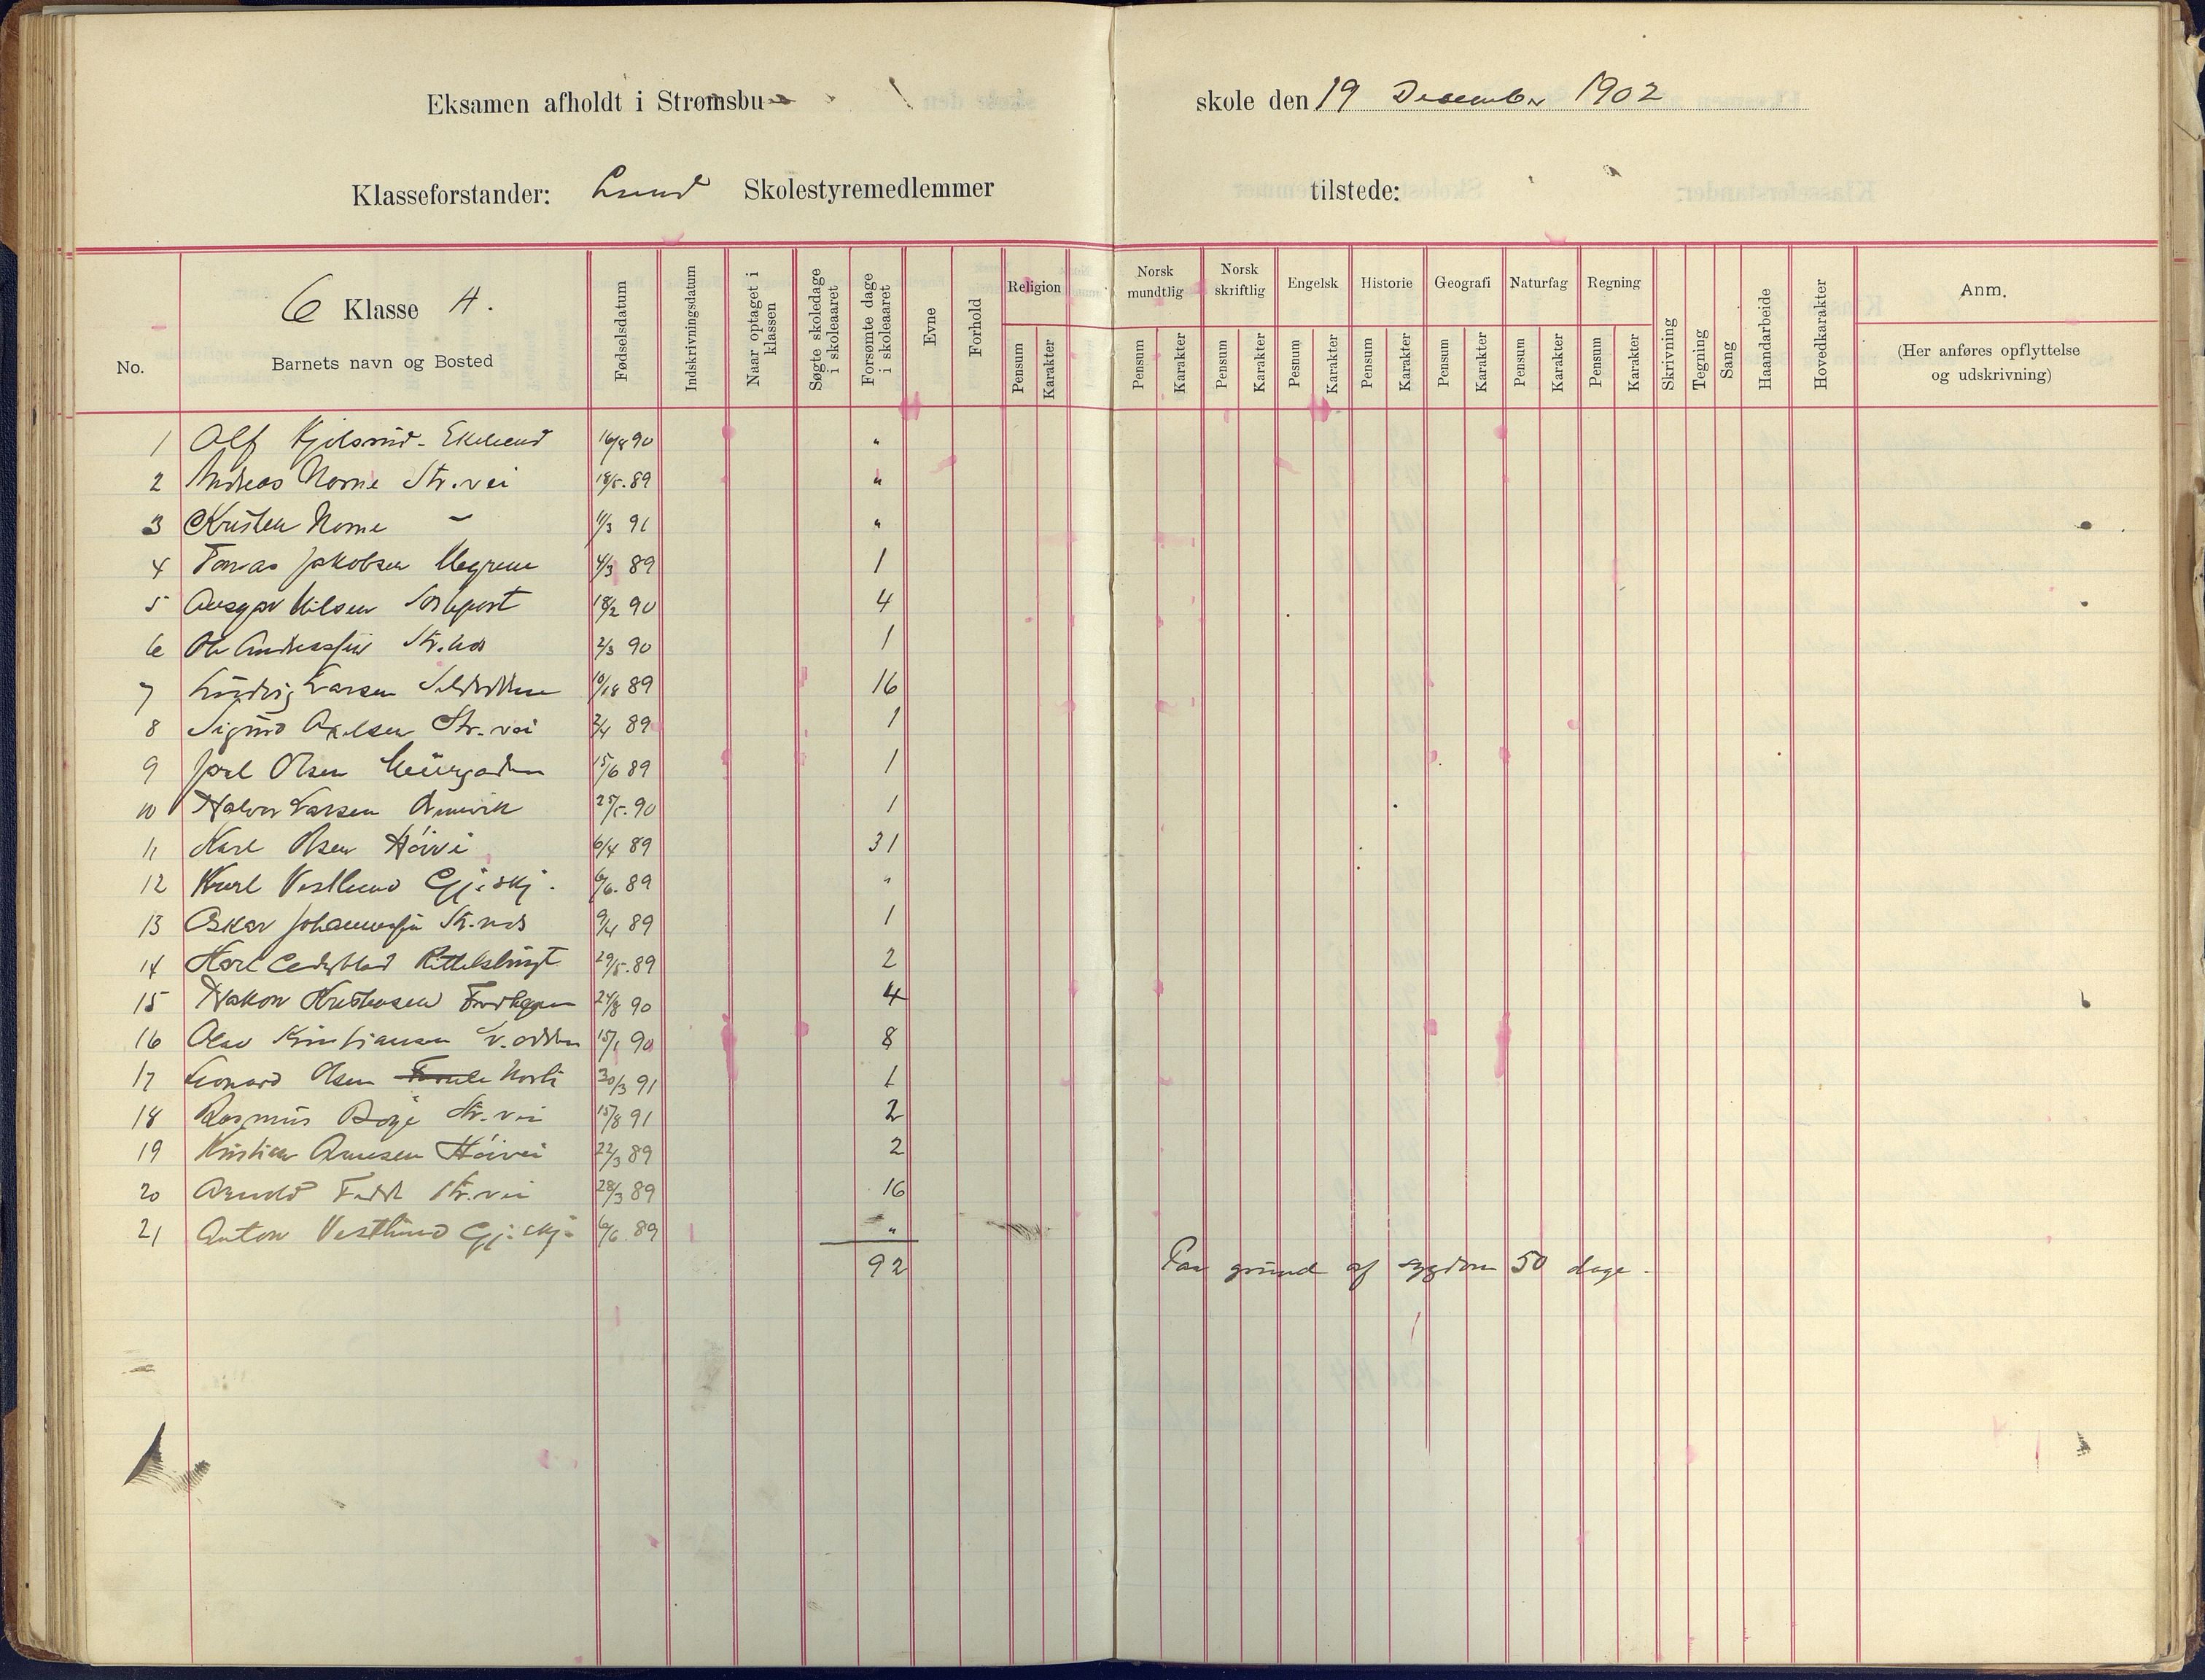 Eksamen afholdt i Strømsbu skole den 19 December 1902
Klasseforstander: Lund Skolestyremedlemmer tilstede:
No.
6 Klasse A.
Barnets navn og Bosted
Fødselsdatum
Indskrivningsdatum
Naar optaget i klassen
Søgte skoledage i skoleaaret
Forsømte dage i skoleaaret
Evne
Forhold
Religion
Pensum Karakter
Norsk mundtlig
Pensum Karakter
Norsk skriftlig
Pensum Karakter
Engelsk
Pesnum Karakter
Historie
Pensum Karakter
Geografi
Pensum Karakter
Naturfag
Pensum Karakter
Regning
Pensum Karakter
Skrivning
Tegning
Sang
Haandarbeide
Hovedkarakter
Anm.
(Her anføres opflyttelse
og udskrivning)
1 Alf 16/8 90 "
2 Andreas Norne Str.vei 18/5.89 "
3 Kristen Norne - 11/3 91 "
4 Tomas Jakobsen 4/3 89 1
5 Ansgar Nilsen 18/2 90 4
6 Ole Andreassen Str. 2/3 90 1
7 Ludvig Larsen 89 16
8 Sigurd Axelsen Str.vei 2/4 89 1
9 Joel Olsen 15/6 89 1
10 Halvor Larsen 25/5.90 1
11 Karl Olsen Høivei 6/4 89 31
12 Karl Vestlund Gj:skj. 6/6.89 "
13 Oskar Johannessen Str. 9/4 89 1
14 Karl 29/5.89 2
15 Hakon 24/8 90 4
16 Olav Kristiansen 15/1 90 8
17 Leonard Olsen 30/3 91 1
18 Rasmus Str.vei 15/8 91 2
19 Kristian Arnesen Høivei 22/3 89 2
20 Arnold Str.vei 28/3 89 16
21 Anton Vestlund Gj:skj. 6/6.89 "
92 Paa grund af sygdom 50 dage.